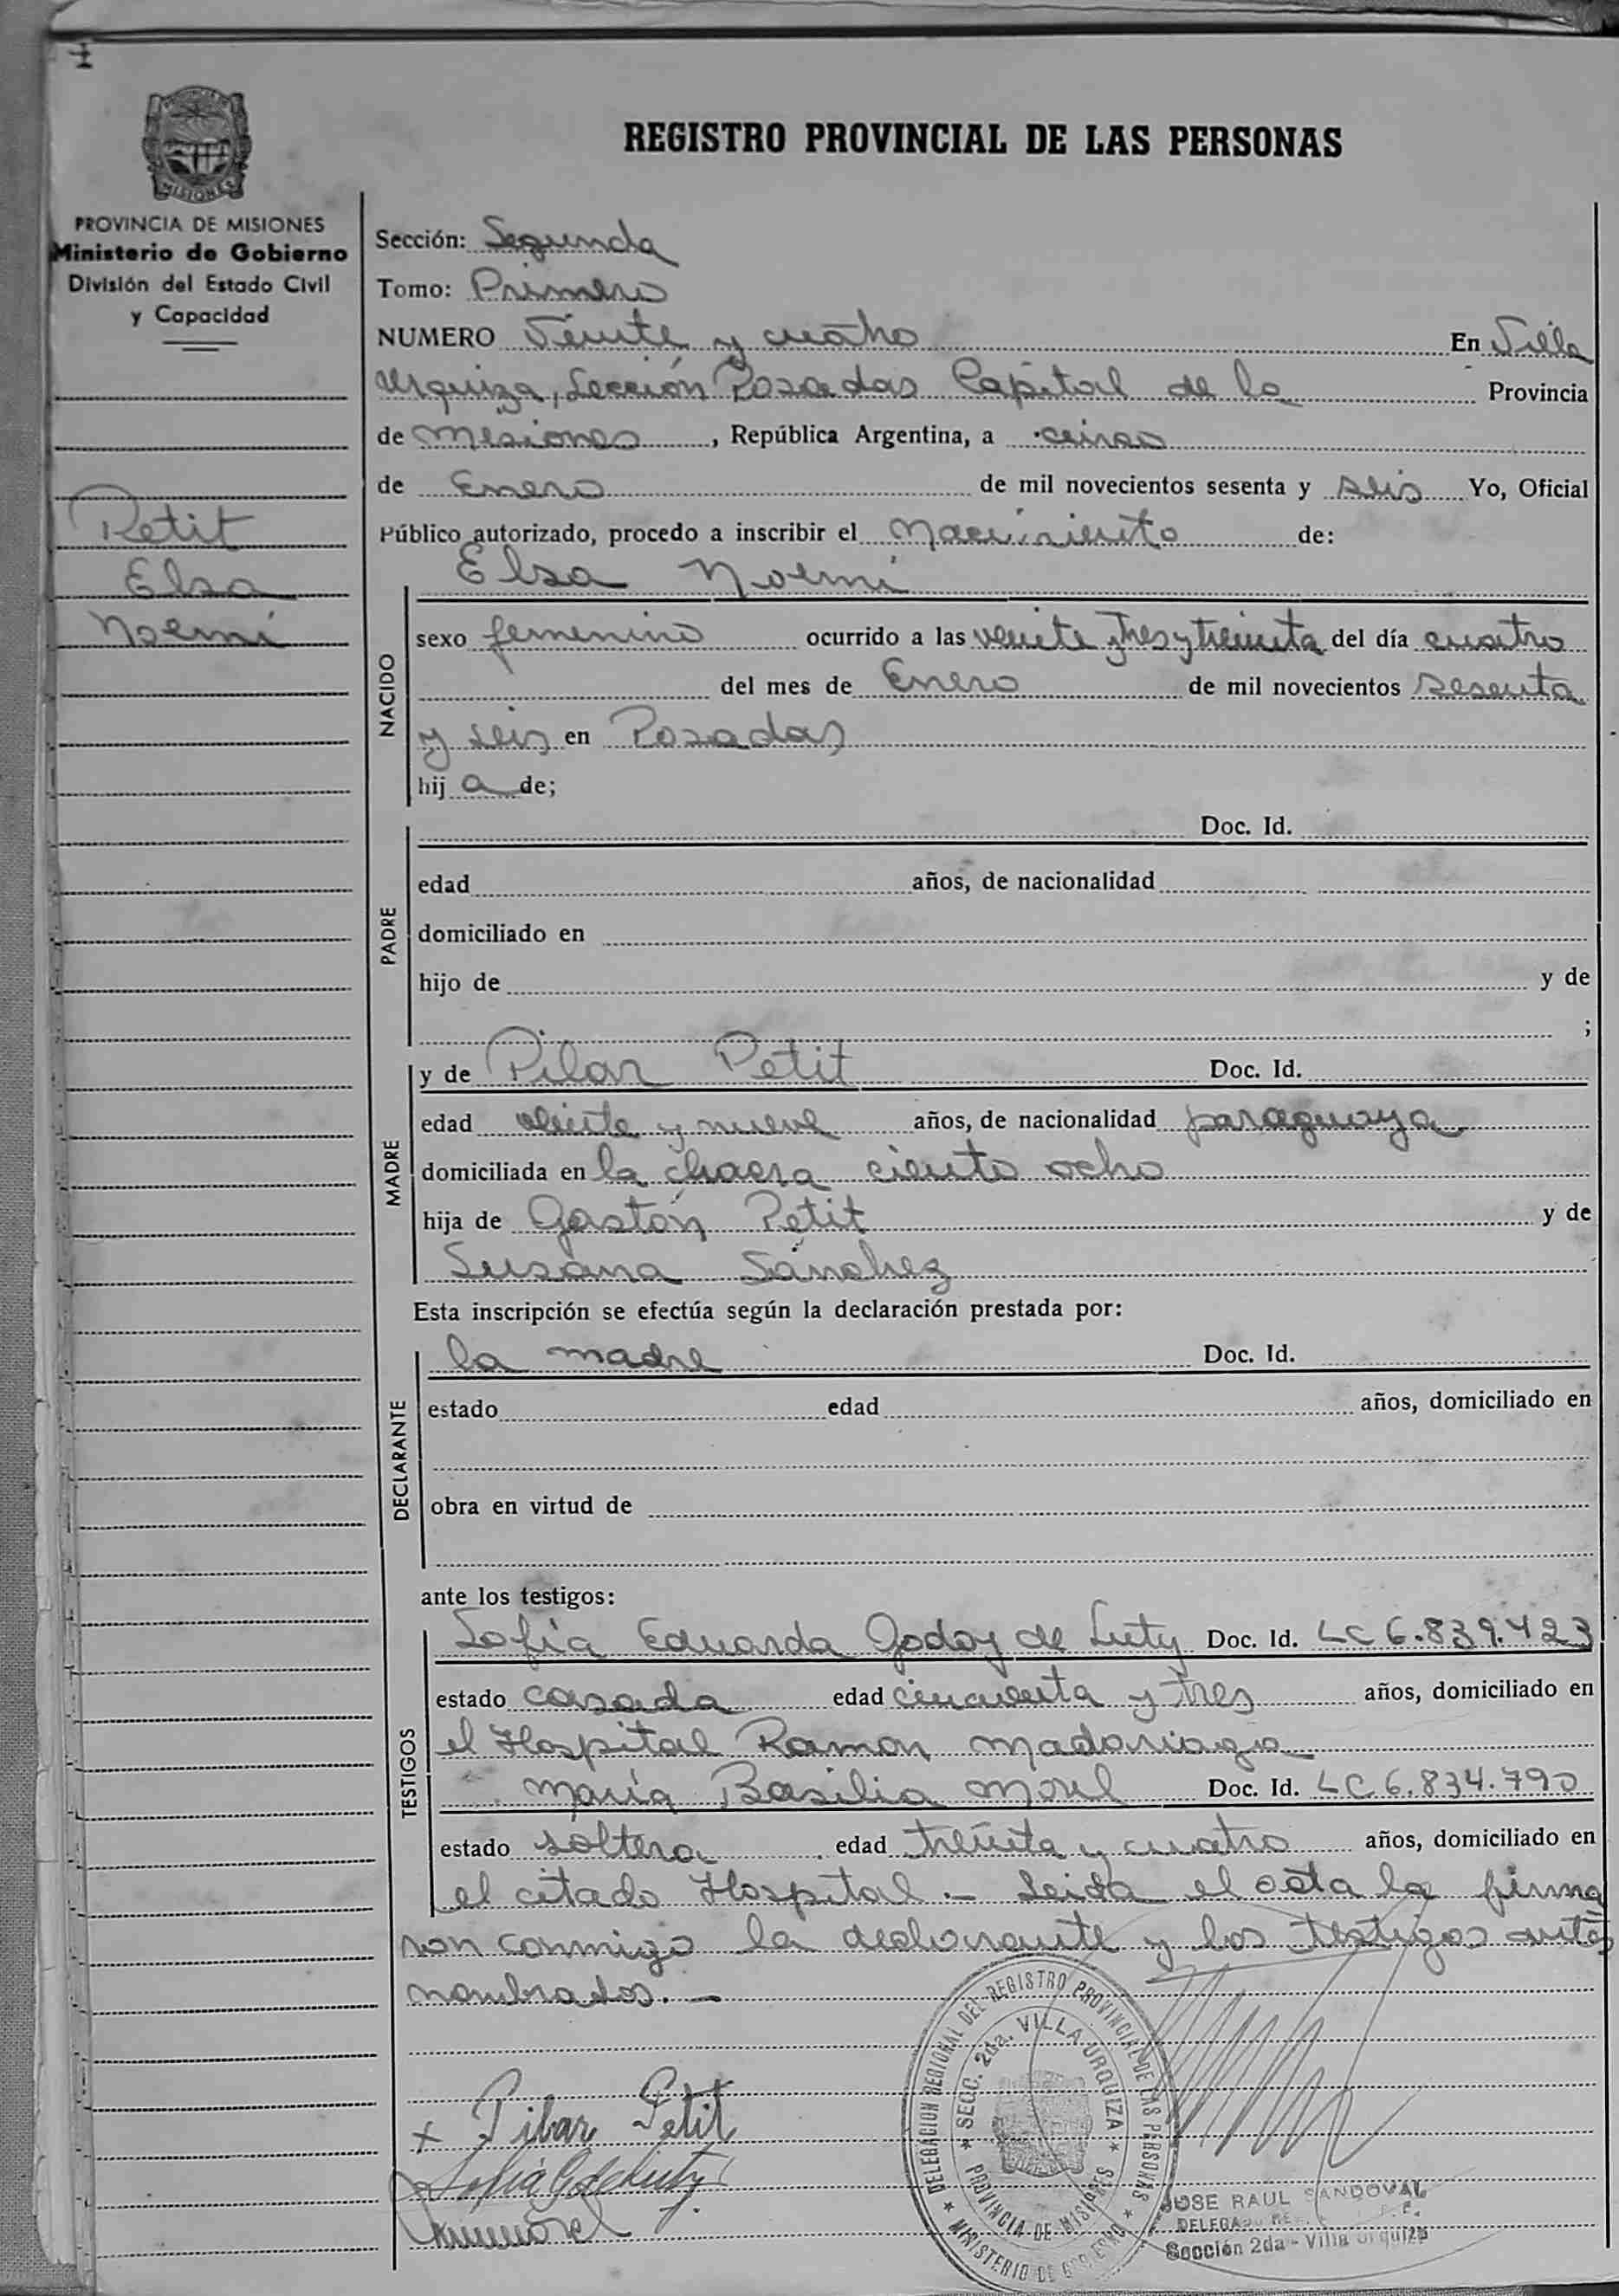 REGISTRO PROVINCIAL DE LAS PERSONAS
PROVINCIA DE MISIONES
Ministerio de Gobierno
División del Estado Civil
y Capacidad
Petit
Elsa
Noemí
Sección: Segunda
Tomo: Primero
NUMERO Veinte y cuatro En Villa
Urquiza, Sección Posadas Capital de la Provincia
de Misiones, República Argentina, a cinco
de Enero de mil novecientos sesenta y seis Yo, Oficial
Público autorizado, procedo a inscribir el Nacimiento de:
Elsa Noemi
NACIDO
sexo femenino ocurrido a las veinte y tres y treinta del día cuatro
del mes de Enero de mil novecientos sesenta
y seis en Posadas
hij a de;
PADRE
Doc. Id.
edad años, de nacionalidad
domiciliado en
hijo de y de
;
MADRE
y de Pilar Petit Doc. Id.
edad veinte y nueve años, de nacionalidad paraguaya
domiciliada en la chacra ciento ocho
hija de Gastón Petit y de
Susana Sánchez
Esta inscripción se efectúa según la declaración prestada por:
DECLARANTE
la madre Doc. Id.
estado edad años, domiciliado en
obra en virtud de
ante los testigos:
TESTIGOS
Sofía Eduarda Godoy de Luty Doc. Id. LC 6.839.423
estado casada edad cincuenta y tres años, domiciliado en
el Hospital Ramon Madariaga
María Basilia Morel Doc. Id. LC 6.834.790
estado soltera edad treinta y cuatro años, domiciliado en
el citado Hospital. — Leida el acta la firma
ron conmigo la declarante y los testigos antes
nombrados. —
x Pilar Petit
DELEGACION REGIONAL DEL REGISTRO PROVINCIAL DE LAS PERSONAS
SECC. 2da. VILLA URQUIZA
PROVINCIA DE MISIONES
MINISTERIO DE GOBIERNO
JOSE RAUL SANDOVAL
Sección 2da - Villa Urquiza